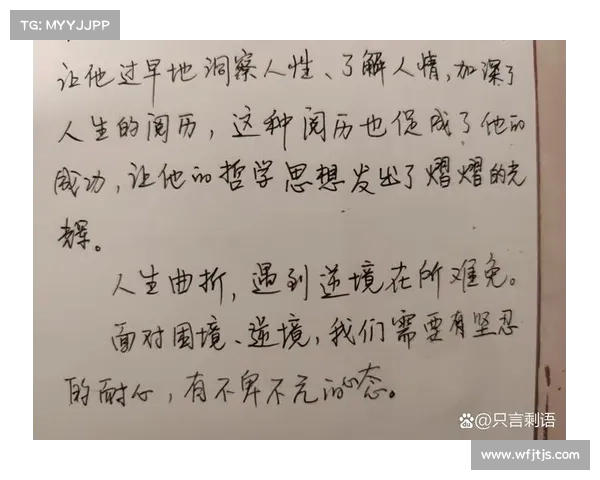 TG: MYYJJPP
让他过早地洞察人性、了解人情,加深了
人生的阅历，这种阅历也促成了他的
成功,让他的哲学思想发出了熠熠的光
辉。
人生曲折,遇到逆境在所难免。
面对困境、逆境,我们需要有坚忍
的耐心，有不卑不亢的心态。
@只言剩语
www.wfjtjs.com